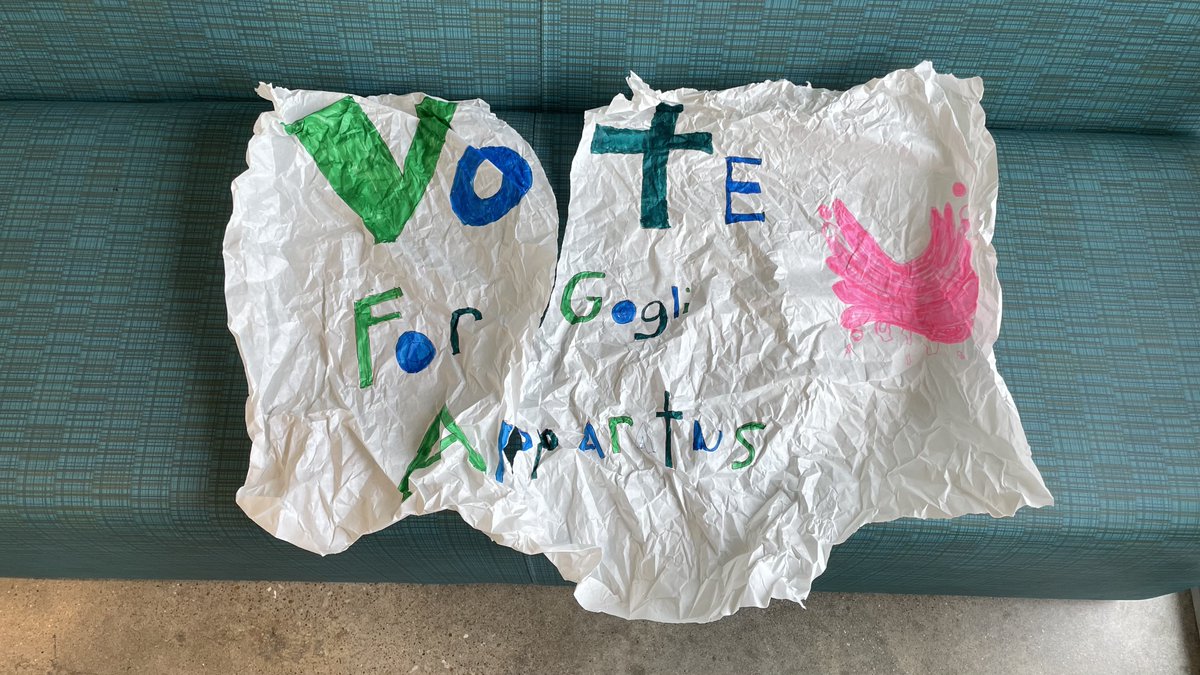 VoTE
For Gogli
Appartus